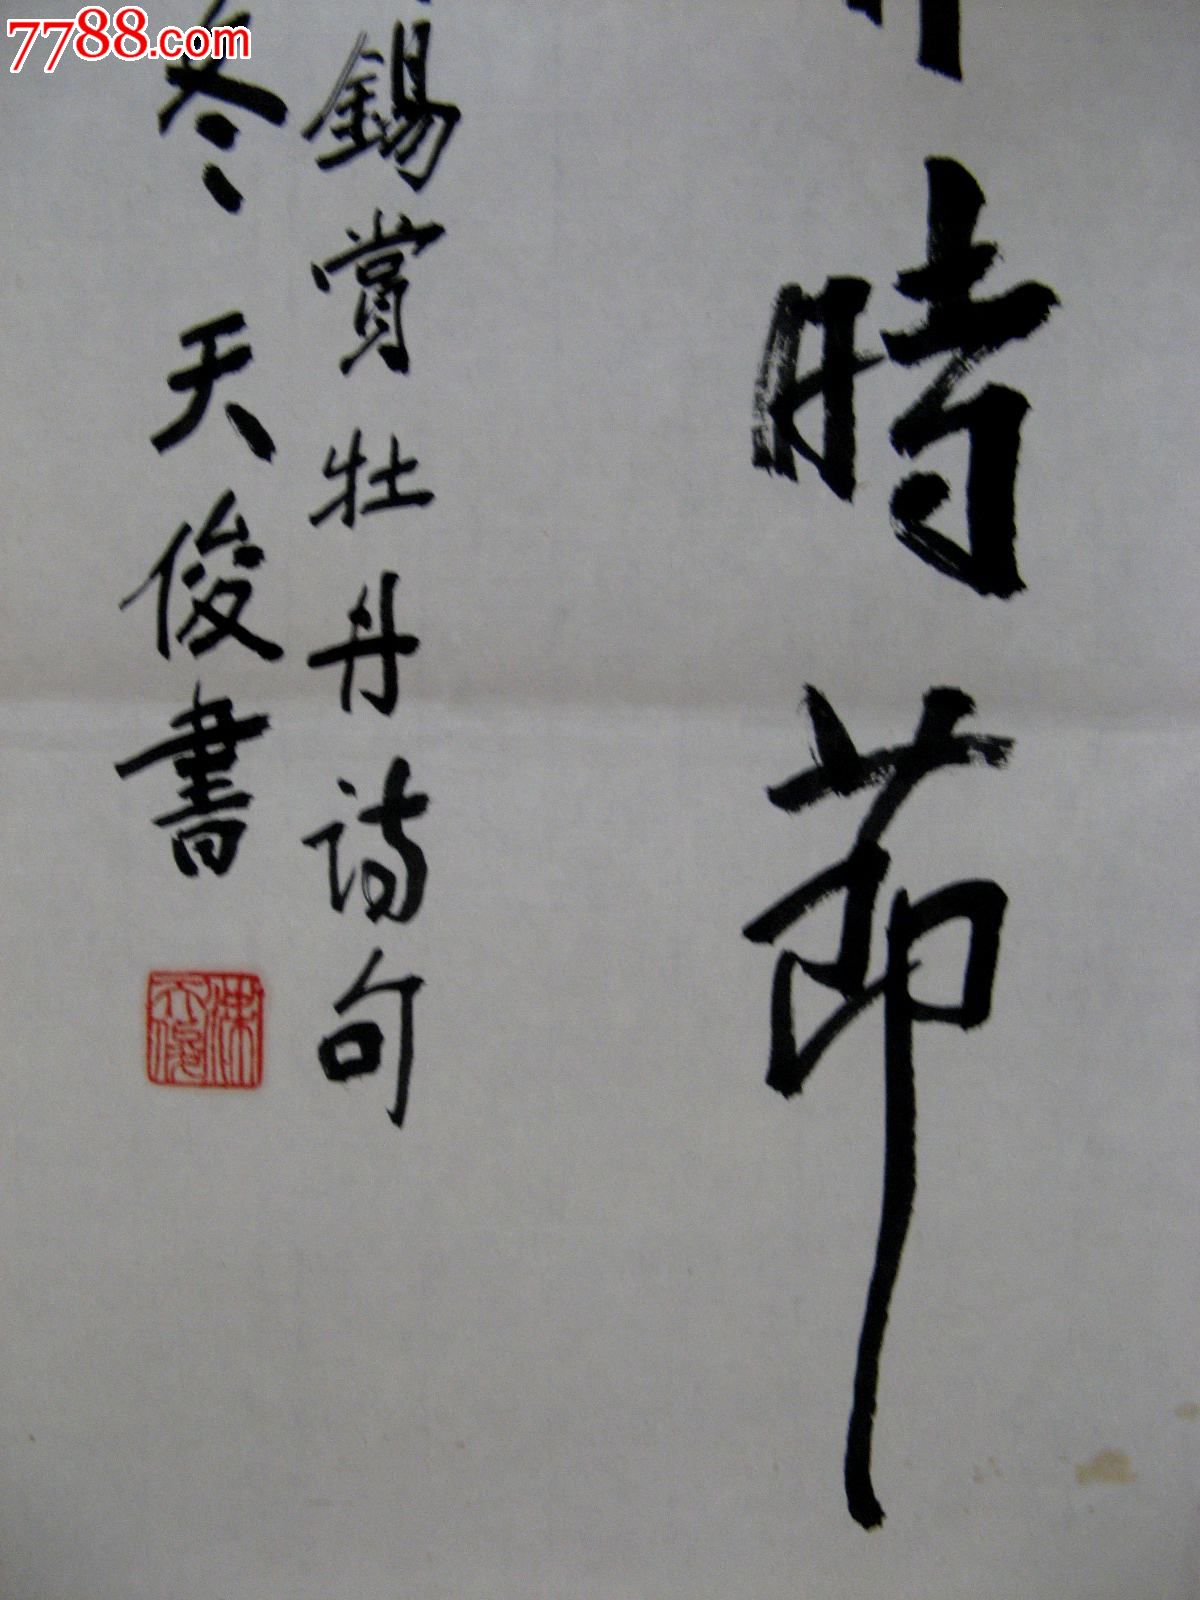 7788.com
時節
錫賞牡丹诗句
冬天俊書